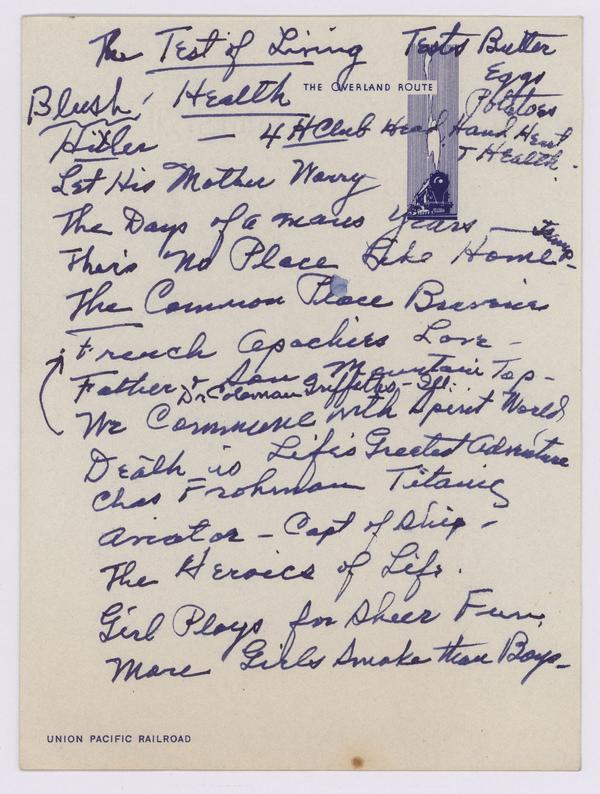 The Test of Living Tests Butter
Eggs
THE OVERLAND ROUTE
Potatoes
Blush! Health
Hitler — 4 H Club Head, Hand Heart
& Health.
Let His Mother Worry
The Days of a mans years —
Ther's No Place Like Home —
The Common Place Braveries
French Apachies Love —
Father & Son a Mountain Top —
Dr Coloman Griffiths — Ill.
We Commune with Spirit World
Death is Life's Greatest Adventure
Chas Frohman Titanic
Aviator — Capt of Ship —
The Heroics of Life.
Girl Plays for Sheer Fun,
More Girls Smoke than Boys —
UNION PACIFIC RAILROAD